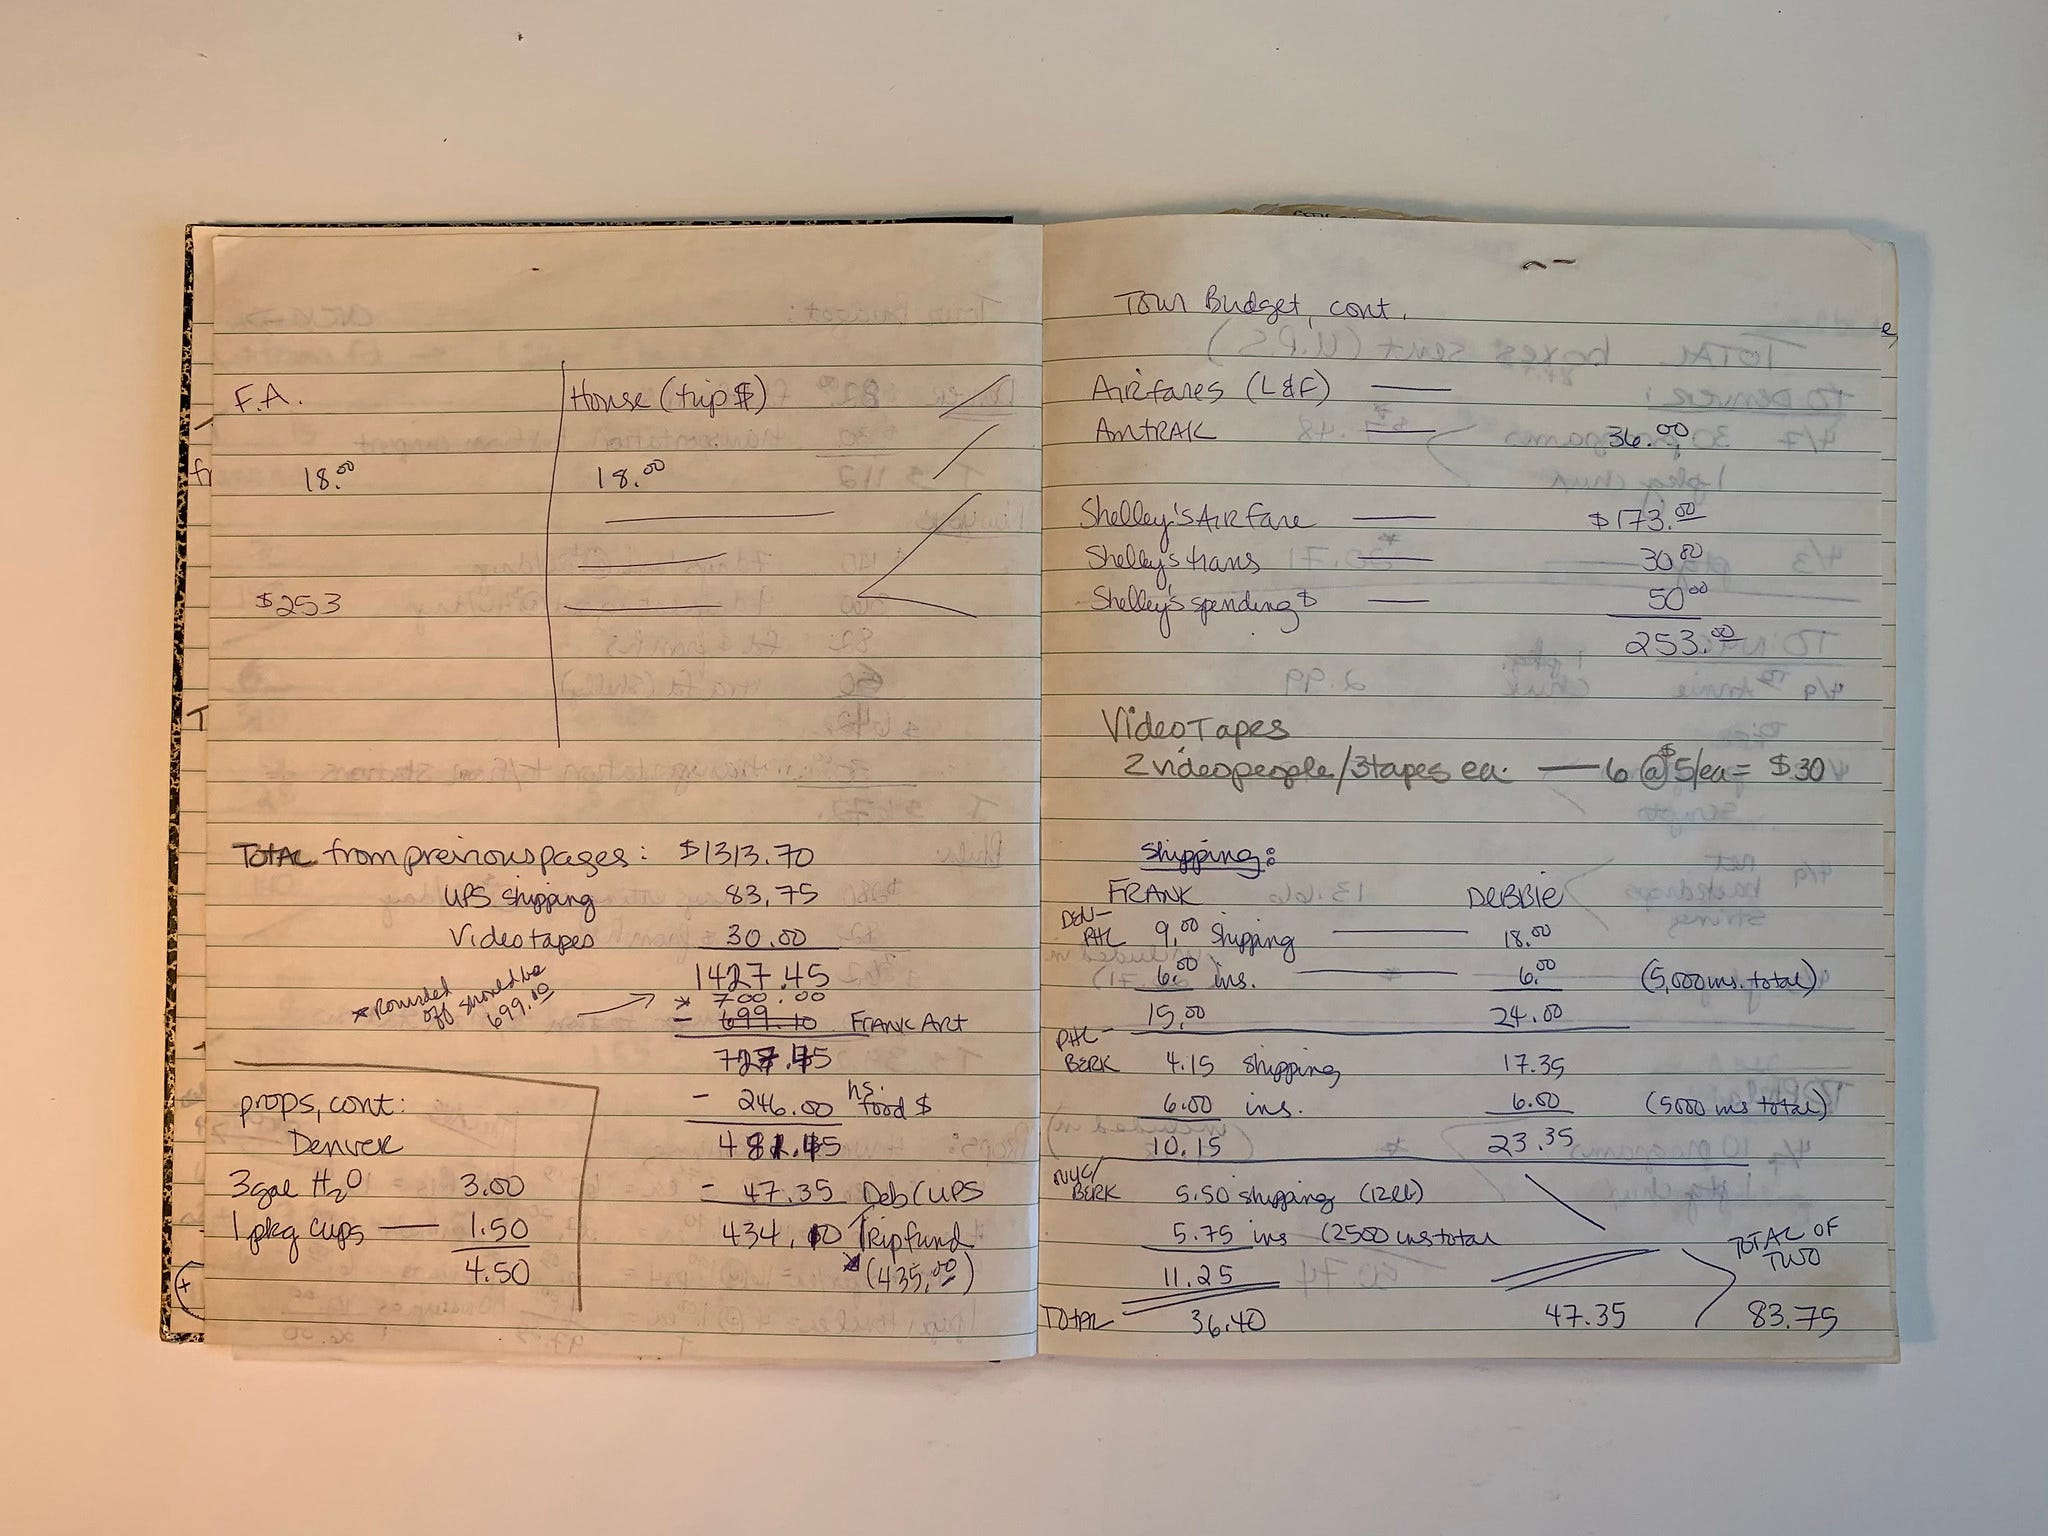 F.A. House (trip $)
18.00 18.00
$253
TOTAL from previous pages: $1313.70
UPS shipping 83.75
Videotapes 30.00
1427.45
* Rounded off should be 699.00
* 700.00
- 699.10 FRANK Art
727.45
- 246.00 hs. food $
481.45
- 47.35 Deb (UPS
434.10 Tripfund
* (435.00)
props, cont:
Denver
3 gal H2O 3.00
1 pkg cups — 1.50
4.50
Tour Budget, cont.
Airfares (L&F) —
AMTRAK — 36.00
Shelley's AIR Fare — $173.00
Shelley's trans — 30.00
Shelley's spending $ — 50.00
253.00
Video Tapes
2 videopeople/3 tapes ea. — 6 @ $5/ea = $30
Shipping:
FRANK DEBBIE
DEN-PHL 9.00 Shipping — 18.00
6.00 ins. — 6.00 (5,000 ins. total)
15.00 24.00
PHL-BERK 4.15 shipping 17.35
6.00 ins. 6.00 (5000 ins total)
10.15 23.35
NYC/BERK 5.50 shipping (12lb)
5.75 ins (2500 ins total
11.25
TOTAL OF TWO
TOTAL 36.40 47.35 83.75